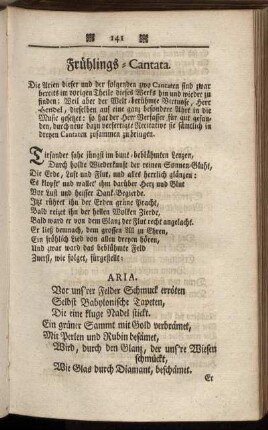 141
Frühlings-Cantata.
Die Arien dieser und der folgenden zwo Cantaten sind zwar
bereits im vorigen Theile dieses Wercks hin und wieder zu
finden: Weil aber der Welt-berühmte Virtuose, Herr
Hendel, dieselben auf eine gantz besondere Ahrt in die
Music gesetzet: so hat der Herr Verfasser für gut gefun-
den, durch neue dazu verfertigte Recitative sie sämtlich in
dreyen Cantaten zusammen zu bringen.
Tirsander sahe jüngst im bunt-beblühmten Lentzen,
Durch holde Wiederkunft der reinen Sonnen-Gluht,
Die Erde, Luft und Flut, und alles herrlich gläntzen:
Es klopft' und wallet' ihm darüber Hertz und Blut
Vor Lust und heisser Danck-Begierde.
Itzt rühret ihn der Erden grüne Pracht,
Bald reitzt ihn der hellen Wolcken Zierde,
Bald ward er von dem Glantz der Flut recht angelacht.
Er ließ demnach, dem grossen All zu Ehren,
Ein fröhlich Lied von allen dreyen hören,
Und zwar ward das beblühmte Feld
Zuerst, wie folget, fürgestellt:
ARIA.
Vor uns'rer Felder Schmuck erröten
Selbst Babylonische Tapeten,
Die eine kluge Nadel stickt.
Ein grüner Sammt mit Gold verbrämet,
Mit Perlen und Rubin besämet,
Wird, durch den Glantz, der uns're Wiesen
schmückt,
Wie Glas durch Diamant, beschämet.
Er